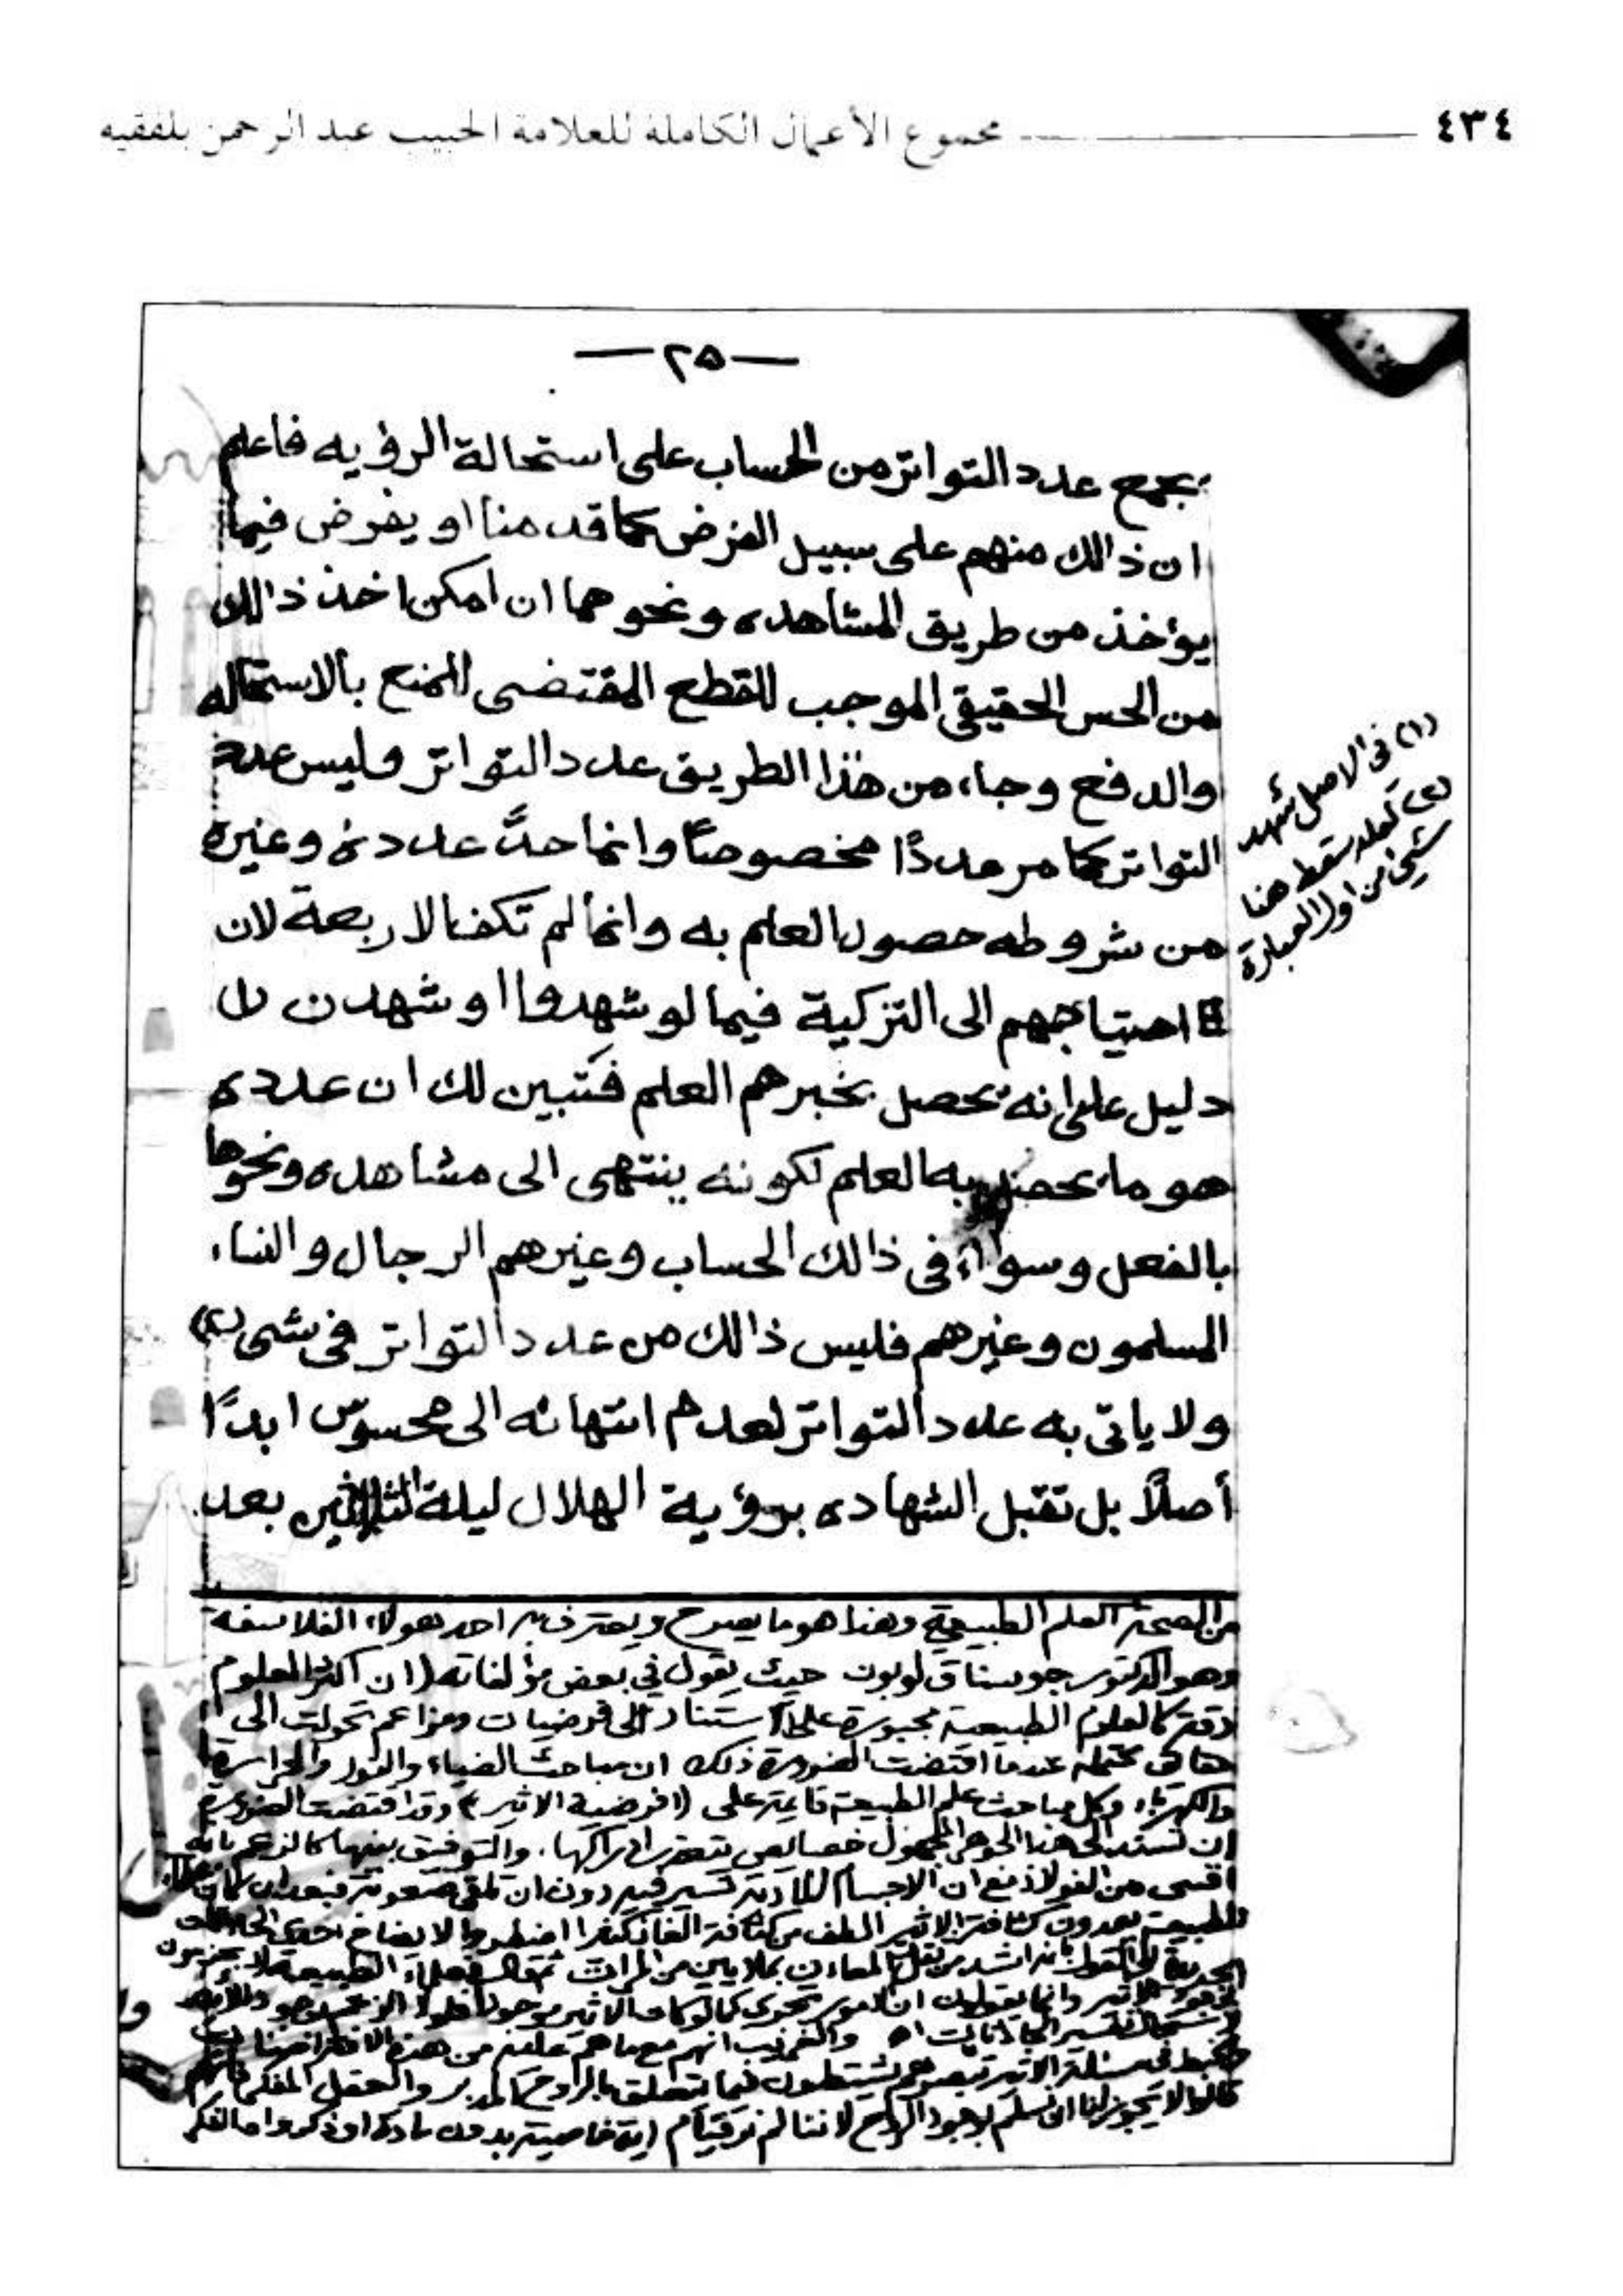 ٤٣٤ مجموع الأعمال الكاملة للعلامة الحبيب عبد الرحمن بلفقيه
— ٢٥ —
يجمع عدد التواتر من الحساب على استحالة الرؤيه فاعلم
ان ذالك منهم على سبيل الفرض كما قدمنا او يفرض فيما
يؤخذ من طريق المشاهده ونحوهما ان امكن اخذ ذالك
من الحس الحقيقي الموجب للقطع المقتضى المنع بالاستحاله
والدفع وجاء من هذا الطريق عدد التواتر وليس عدد
التواتر كما مر عددًا مخصوصًا وانما حدّ عدده وغيره
من شروطه حصول العلم به وانما لم تكف الاربعة لان
احتياجهم الى التزكية فيما لو شهدوا او شهدن
دليل على انه يحصل بخبرهم العلم فتبين لك ان عدده
هو ما يحصل به العلم لكونه ينتهى الى مشاهده ونحوها
بالفعل وسواء فى ذالك الحساب وغيرهم الرجال والنساء
المسلمون وغيرهم فليس ذالك من عدد التواتر فى شى (٢)
ولا ياتى به عدد التواتر لعدم انتهائه الى محسوس ابدًا
أصلًا بل تقبل الشهاده برؤية الهلال ليلة الثلاثين بعد
(١) فى الاصل شهد
(٢) لعله سقط هنا
شيئ من اول العبارة
العلم الطبيعية وهذا هو ما يصرح ويعترف به احد هولاء الفلاسفة
وهو الدكتور جوستاف لوبون حيث يقول في بعض مؤلفاته (ان اكثر العلوم
دقة كالعلوم الطبيعية مجبورة على الاستناد الى فرضيات ومزاعم تحولت الى
حقائق محتملة عندما اقتضت الضرورة ذلك ان مباحث الضياء والنور والحرارة
والكهرباء وكل مباحث علم الطبيعة قائمة على (فرضية الاثير) وقد اقتضت الضرورة
ان تسند الى هذا الجوهر المجهول خصائص يتعذر ادراكها، والتوفيق بينها كالزعم بانه
اقسى من الفولاذ مع ان الاجسام المادية تسير فيه دون ان تلقى صعوبة فبعد ان كان
الطبيعة يعدون كثافة الاثير الطف من كثافة الغاز اضطروا لايضاح احدى
الى القول بانه اشد من ثقل المعادن بملايين من المرات علماء الطبيعة لا يجزمون
الاثير وانما يقولون ان الامور تجرى كما لو كان الاثير موجودا
والغريب انهم مع ما هم عليه من هذه
فى مسئلة الاثير يشتطون فيما يتعلق بالروح المدبر والعقل المفكر
قالوا لا يجوز لنا ان نسلم بوجود الروح لاننا لم نر قيام اية خاصية بدون مادة وذكروا